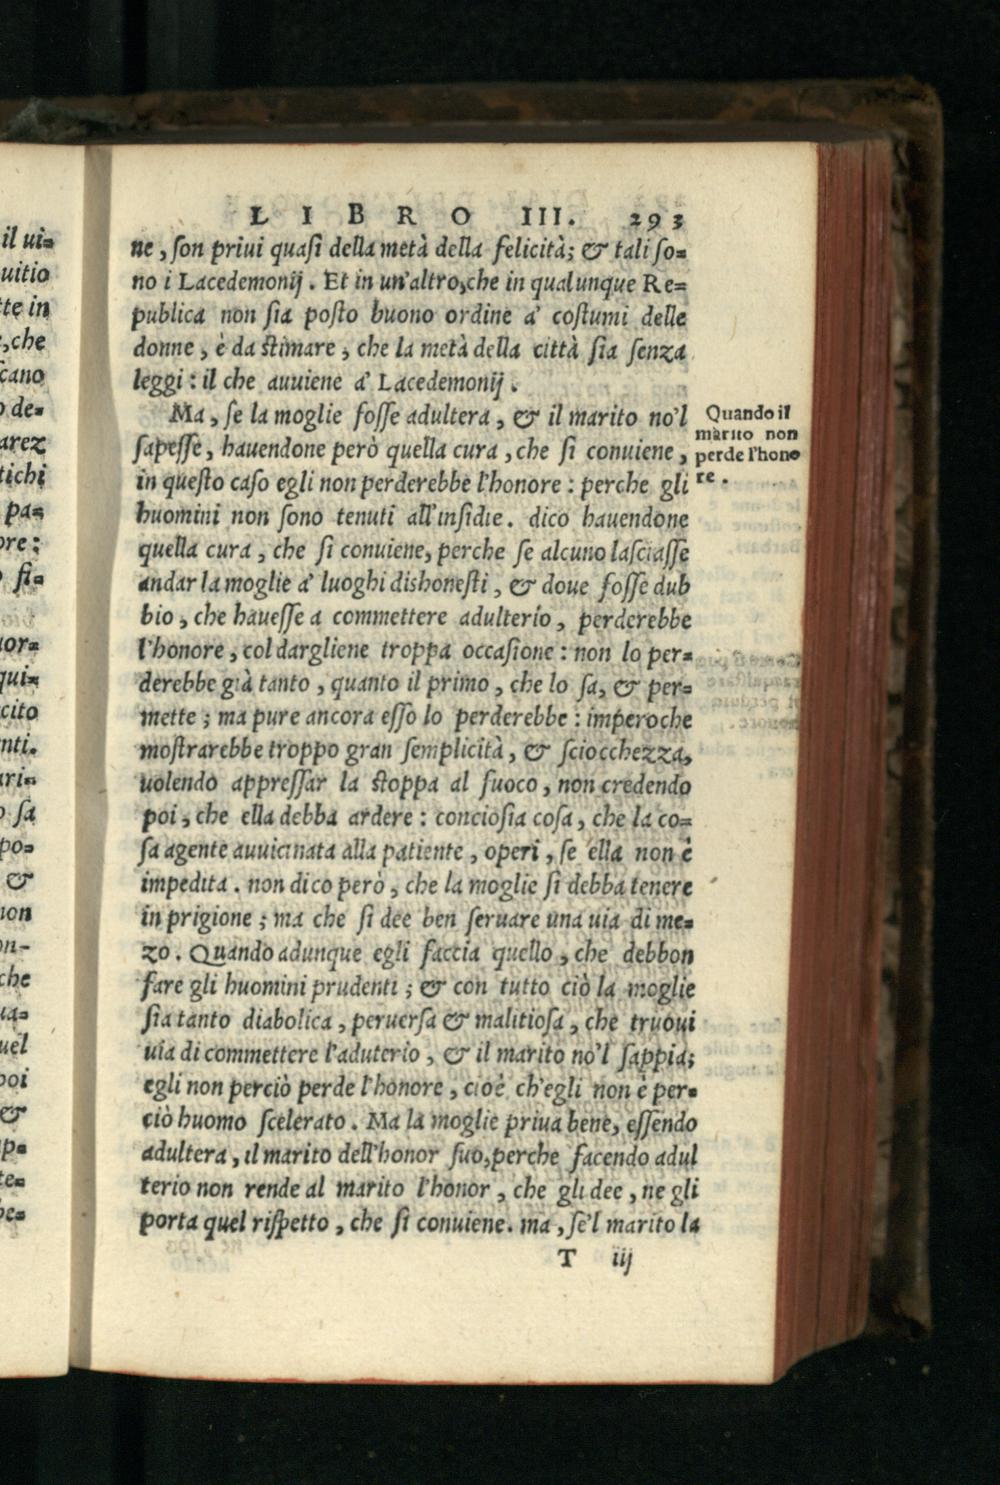 LIBRO III. 293
ne, son priui quasi della metà della felicità; & tali so=
no i Lacedemonij. Et in un'altro, che in qualunque Re=
publica non sia posto buono ordine a' costumi delle
donne, è da stimare, che la metà della città sia senza
leggi: il che auuiene a' Lacedemonij.
Ma, se la moglie fosse adultera, & il marito no'l
sapesse, hauendone però quella cura, che si conuiene,
in questo caso egli non perderebbe l'honore: perche gli
huomini non sono tenuti all'insidie. dico hauendone
quella cura, che si conuiene, perche se alcuno lasciasse
andar la moglie a' luoghi dishonesti, & doue fosse dub
bio, che hauesse a commettere adulterio, perderebbe
l'honore, col dargliene troppa occasione: non lo per=
derebbe già tanto, quanto il primo, che lo sa, & per=
mette; ma pure ancora esso lo perderebbe: imperoche
mostrarebbe troppo gran semplicità, & sciocchezza,
uolendo appressar la stoppa al fuoco, non credendo
poi, che ella debba ardere: conciosia cosa, che la co=
sa agente auuicinata alla patiente, operi, se ella non è
impedita. non dico però, che la moglie si debba tenere
in prigione; ma che si dee ben seruare una uia di me=
zo. Quando adunque egli faccia quello, che debbon
fare gli huomini prudenti; & con tutto ciò la moglie
sia tanto diabolica, peruersa & malitiosa, che truoui
uia di commettere l'aduterio, & il marito no'l sappia;
egli non perciò perde l'honore, cioè ch'egli non è per=
ciò huomo scelerato. Ma la moglie priua bene, essendo
adultera, il marito dell'honor suo, perche facendo adul
terio non rende al marito l'honor, che gli dee, ne gli
porta quel rispetto, che si conuiene. ma, se'l marito la
T iij
Quando il
marito non
perde l'hono
re.
il ui=
uitio
tte in
,che
cano
o de=
arez
tichi
pa=
ore:
fi=
uor=
qui=
cito
nti.
ari=
o sa
po=
&
non
on-
che
ua=
uel
poi
&
te=
be=